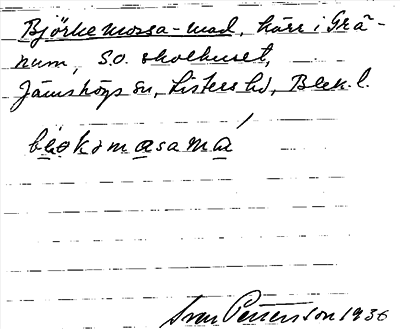 Björkemossa-mad, kärr i Grä-
num, S.O. skolhuset,
Jämshögs sn, Listers hd, Blek. l.
bɛokɔmasamá
Sven Petersson 1936